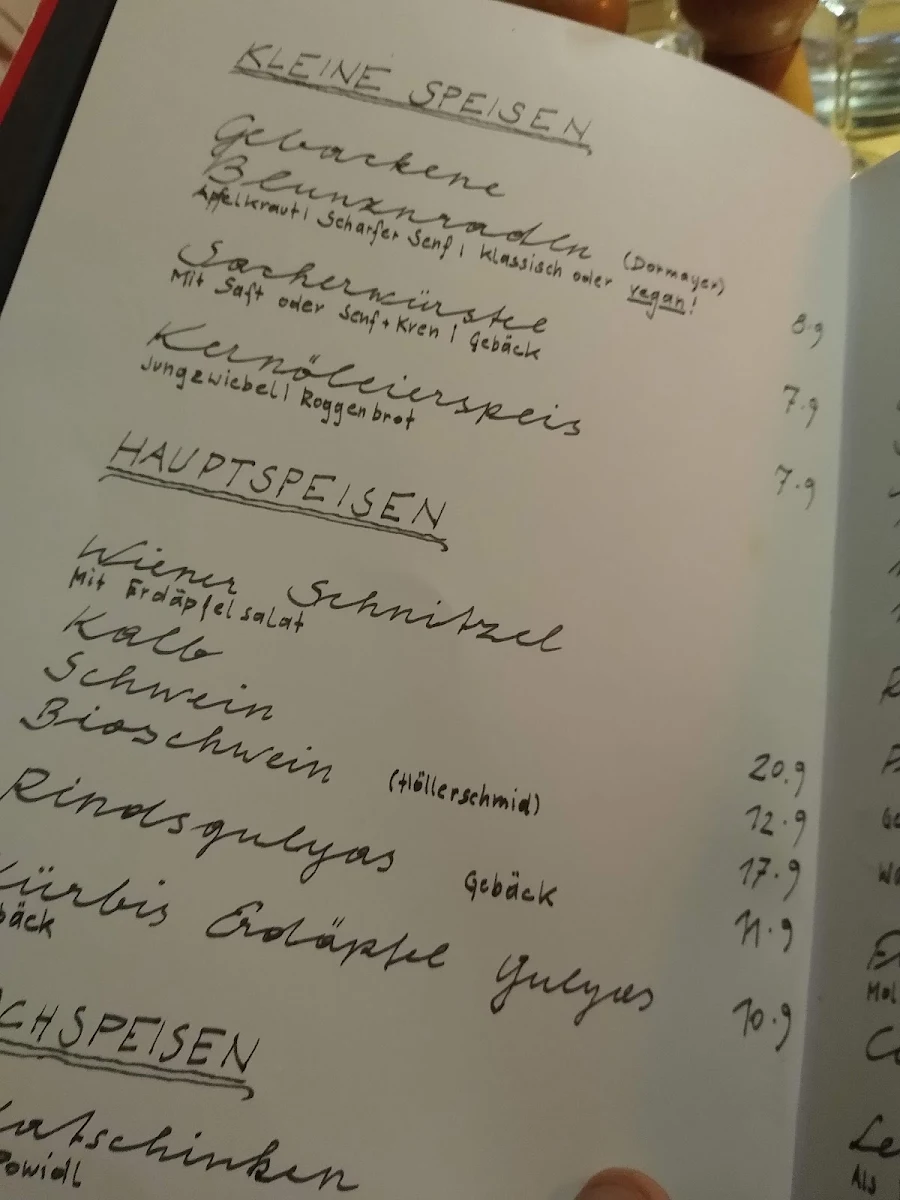 KLEINE SPEISEN
Gebackene
Blunznradln (Dormayer)
Apfelkraut | Scharfer Senf | Klassisch oder vegan! 8.9
Sacherwürstel
Mit Saft oder Senf + Kren | Gebäck 7.9
Kernöleierspeis
Jungzwiebel | Roggenbrot 7.9
HAUPTSPEISEN
Wiener Schnitzel
Mit Erdäpfelsalat
Kalb 20.9
Schwein 12.9
Bioschwein (Höllerschmid) 17.9
Rindsgulyas Gebäck 11.9
Kürbis Erdäpfel Gulyas 10.9
bäck
CHSPEISEN
atschinken
Powidl
Mol
Le
Als